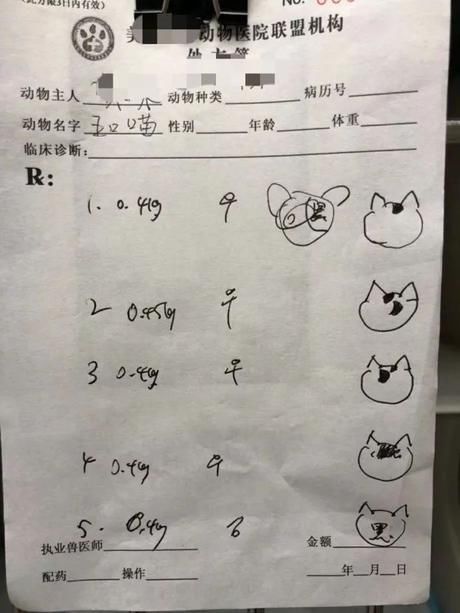 方限3日内有效)
No.
美 动物医院联盟机构
处方笺
动物主人 动物种类 病历号
动物名字 喵 性别 年龄 体重
临床诊断:
R:
1. 0.4kg ♀
2 0.45kg ♀
3 0.4kg ♀
4 0.4kg ♀
5. 0.4kg 黑
执业兽医师 金额
配药 操作 年 月 日